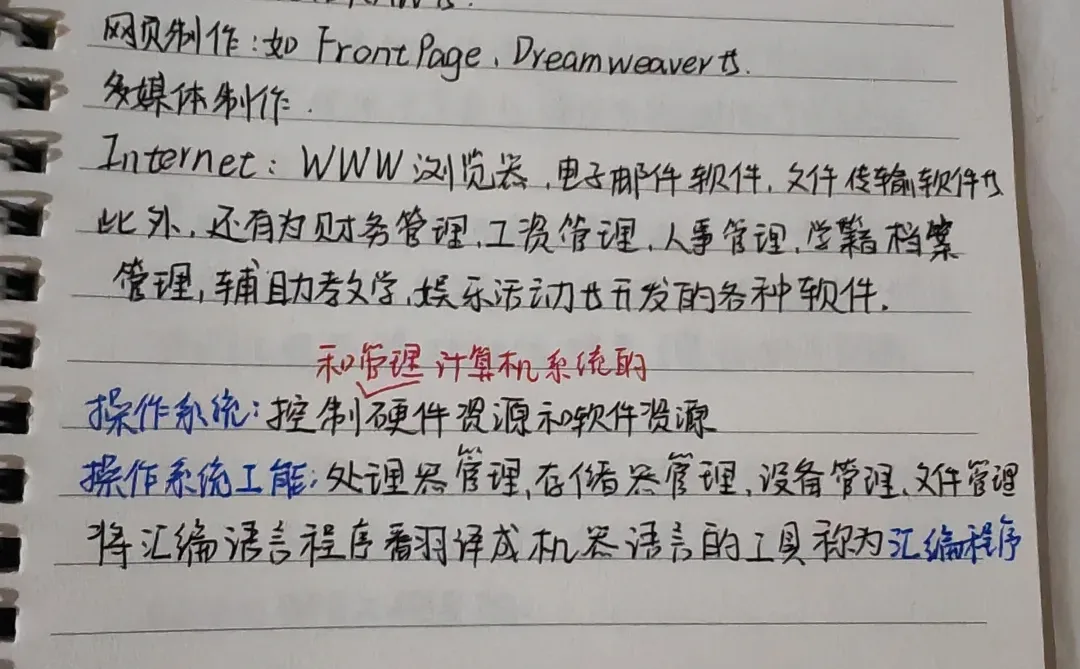 网页制作:如 FrontPage、Dreamweaver等.
多媒体制作.
Internet: WWW浏览器,电子邮件软件,文件传输软件等
此外,还有为财务管理,工资管理,人事管理,学籍档案
管理,辅助教学,娱乐活动等开发的各种软件.
和管理计算机系统的
操作系统:控制硬件资源和软件资源
操作系统工能:处理器管理,存储器管理,设备管理,文件管理
将汇编语言程序翻译成机器语言的工具称为汇编程序